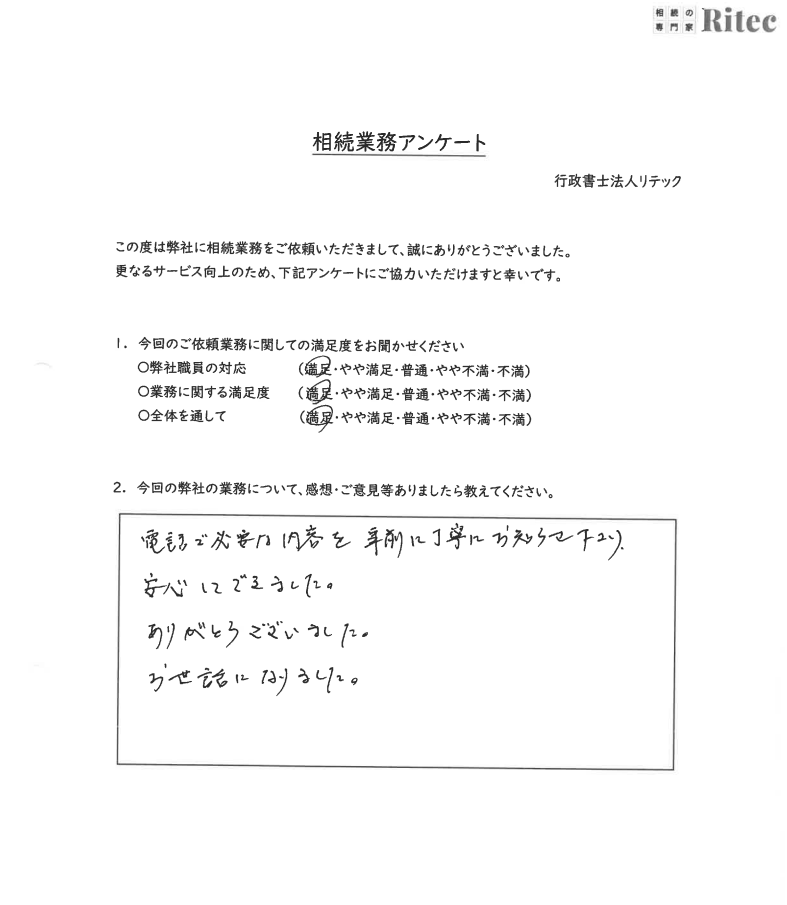 相続の
専門家
Ritec
相続業務アンケート
行政書士法人リテック
この度は弊社に相続業務をご依頼いただきまして、誠にありがとうございました。
更なるサービス向上のため、下記アンケートにご協力いただけますと幸いです。
1. 今回のご依頼業務に関しての満足度をお聞かせください
○弊社職員の対応 (満足・やや満足・普通・やや不満・不満)
○業務に関する満足度 (満足・やや満足・普通・やや不満・不満)
○全体を通して (満足・やや満足・普通・やや不満・不満)
2. 今回の弊社の業務について、感想・ご意見等ありましたら教えてください。
電話で必要な内容を事前に丁寧にお知らせ下さり、
安心してできました。
ありがとうございました。
お世話になりました。